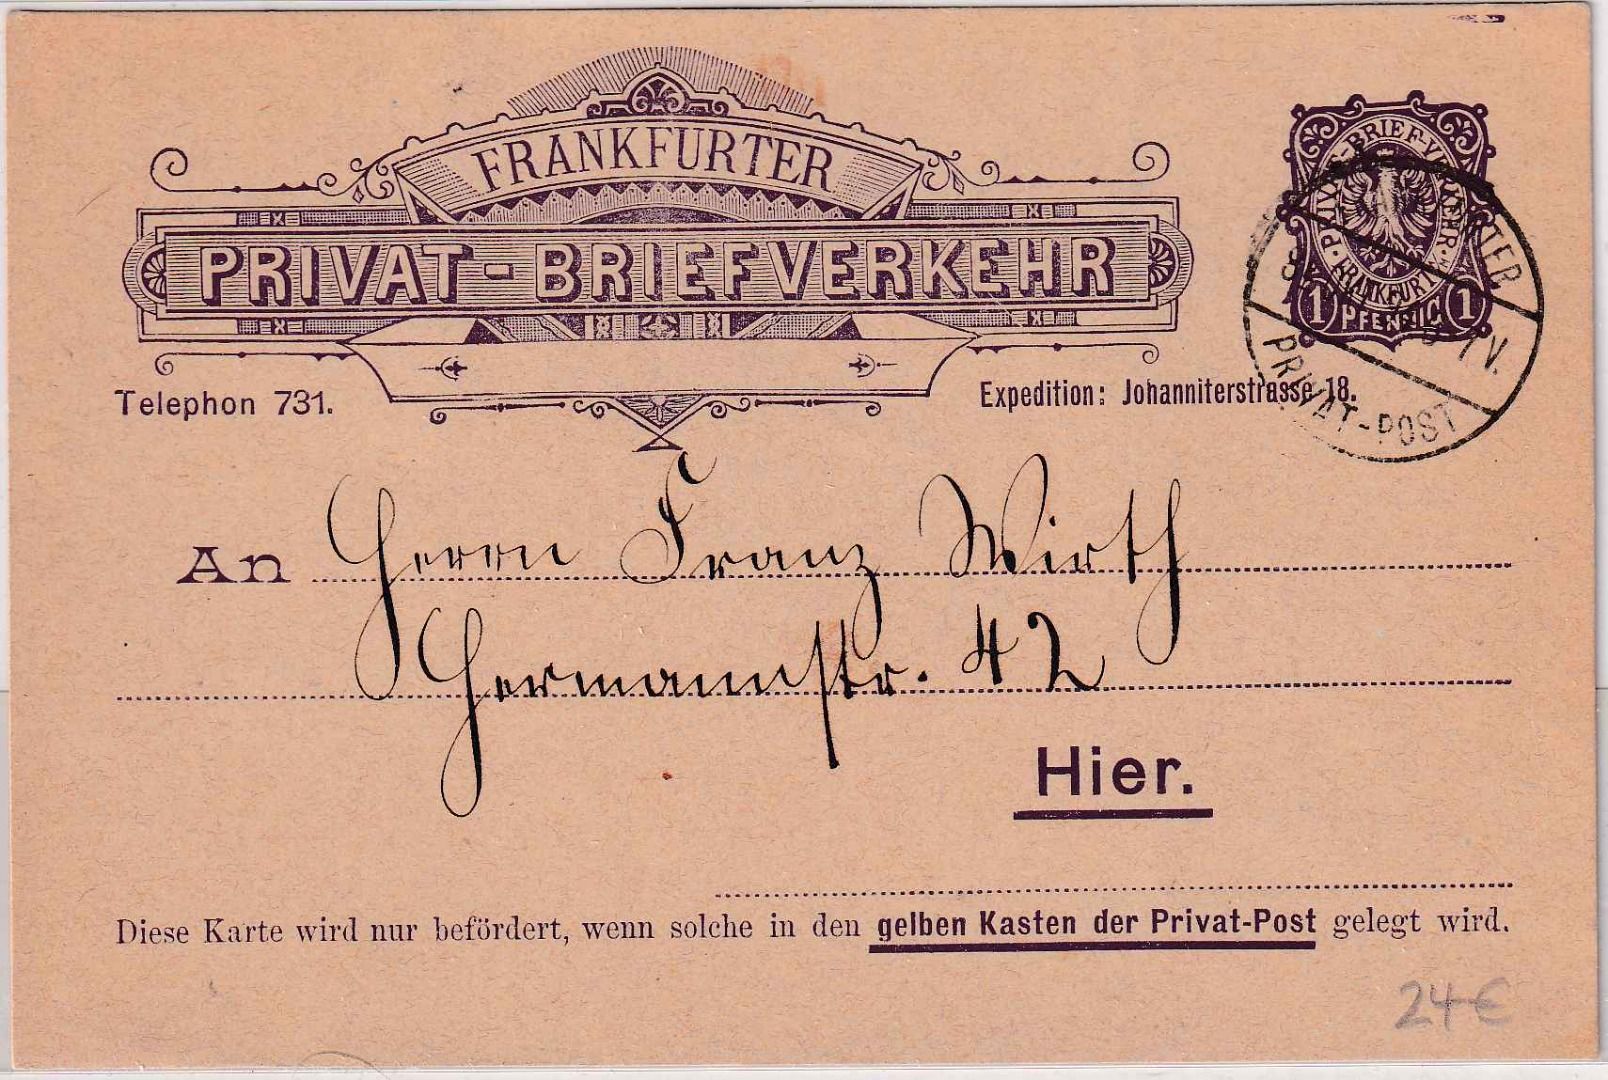 FRANKFURTER
PRIVAT-BRIEFVERKEHR
PRIVAT-BRIEF-VERKEHR
FRANKFURT
1 PFENNIG 1
PRIVAT-POST
Telephon 731.
Expedition: Johanniterstrasse 18.
An Herrn Franz Wirth
Hermannstr. 42
Hier.
Diese Karte wird nur befördert, wenn solche in den gelben Kasten der Privat-Post gelegt wird.
24€